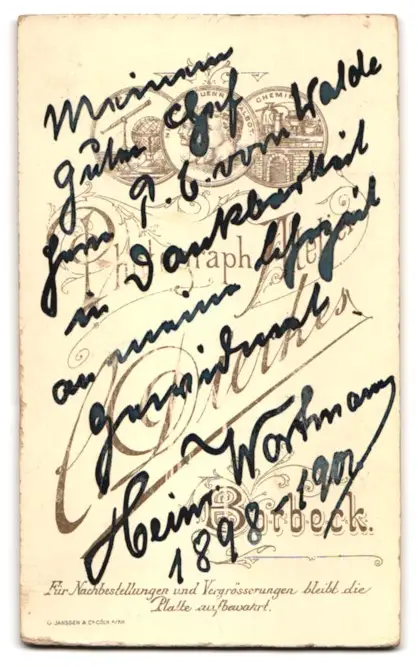 Meinem
guten Chef
Herrn P. C. vom Walde
in Dankbarkeit
an meine Lehrzeit
gewidmet
Heinr. Wortmann
1898-1901
CHEMIE
Photograph. Atelier
C. Dierkes
Borbeck.
Für Nachbestellungen und Vergrösserungen bleibt die
Platte aufbewahrt.